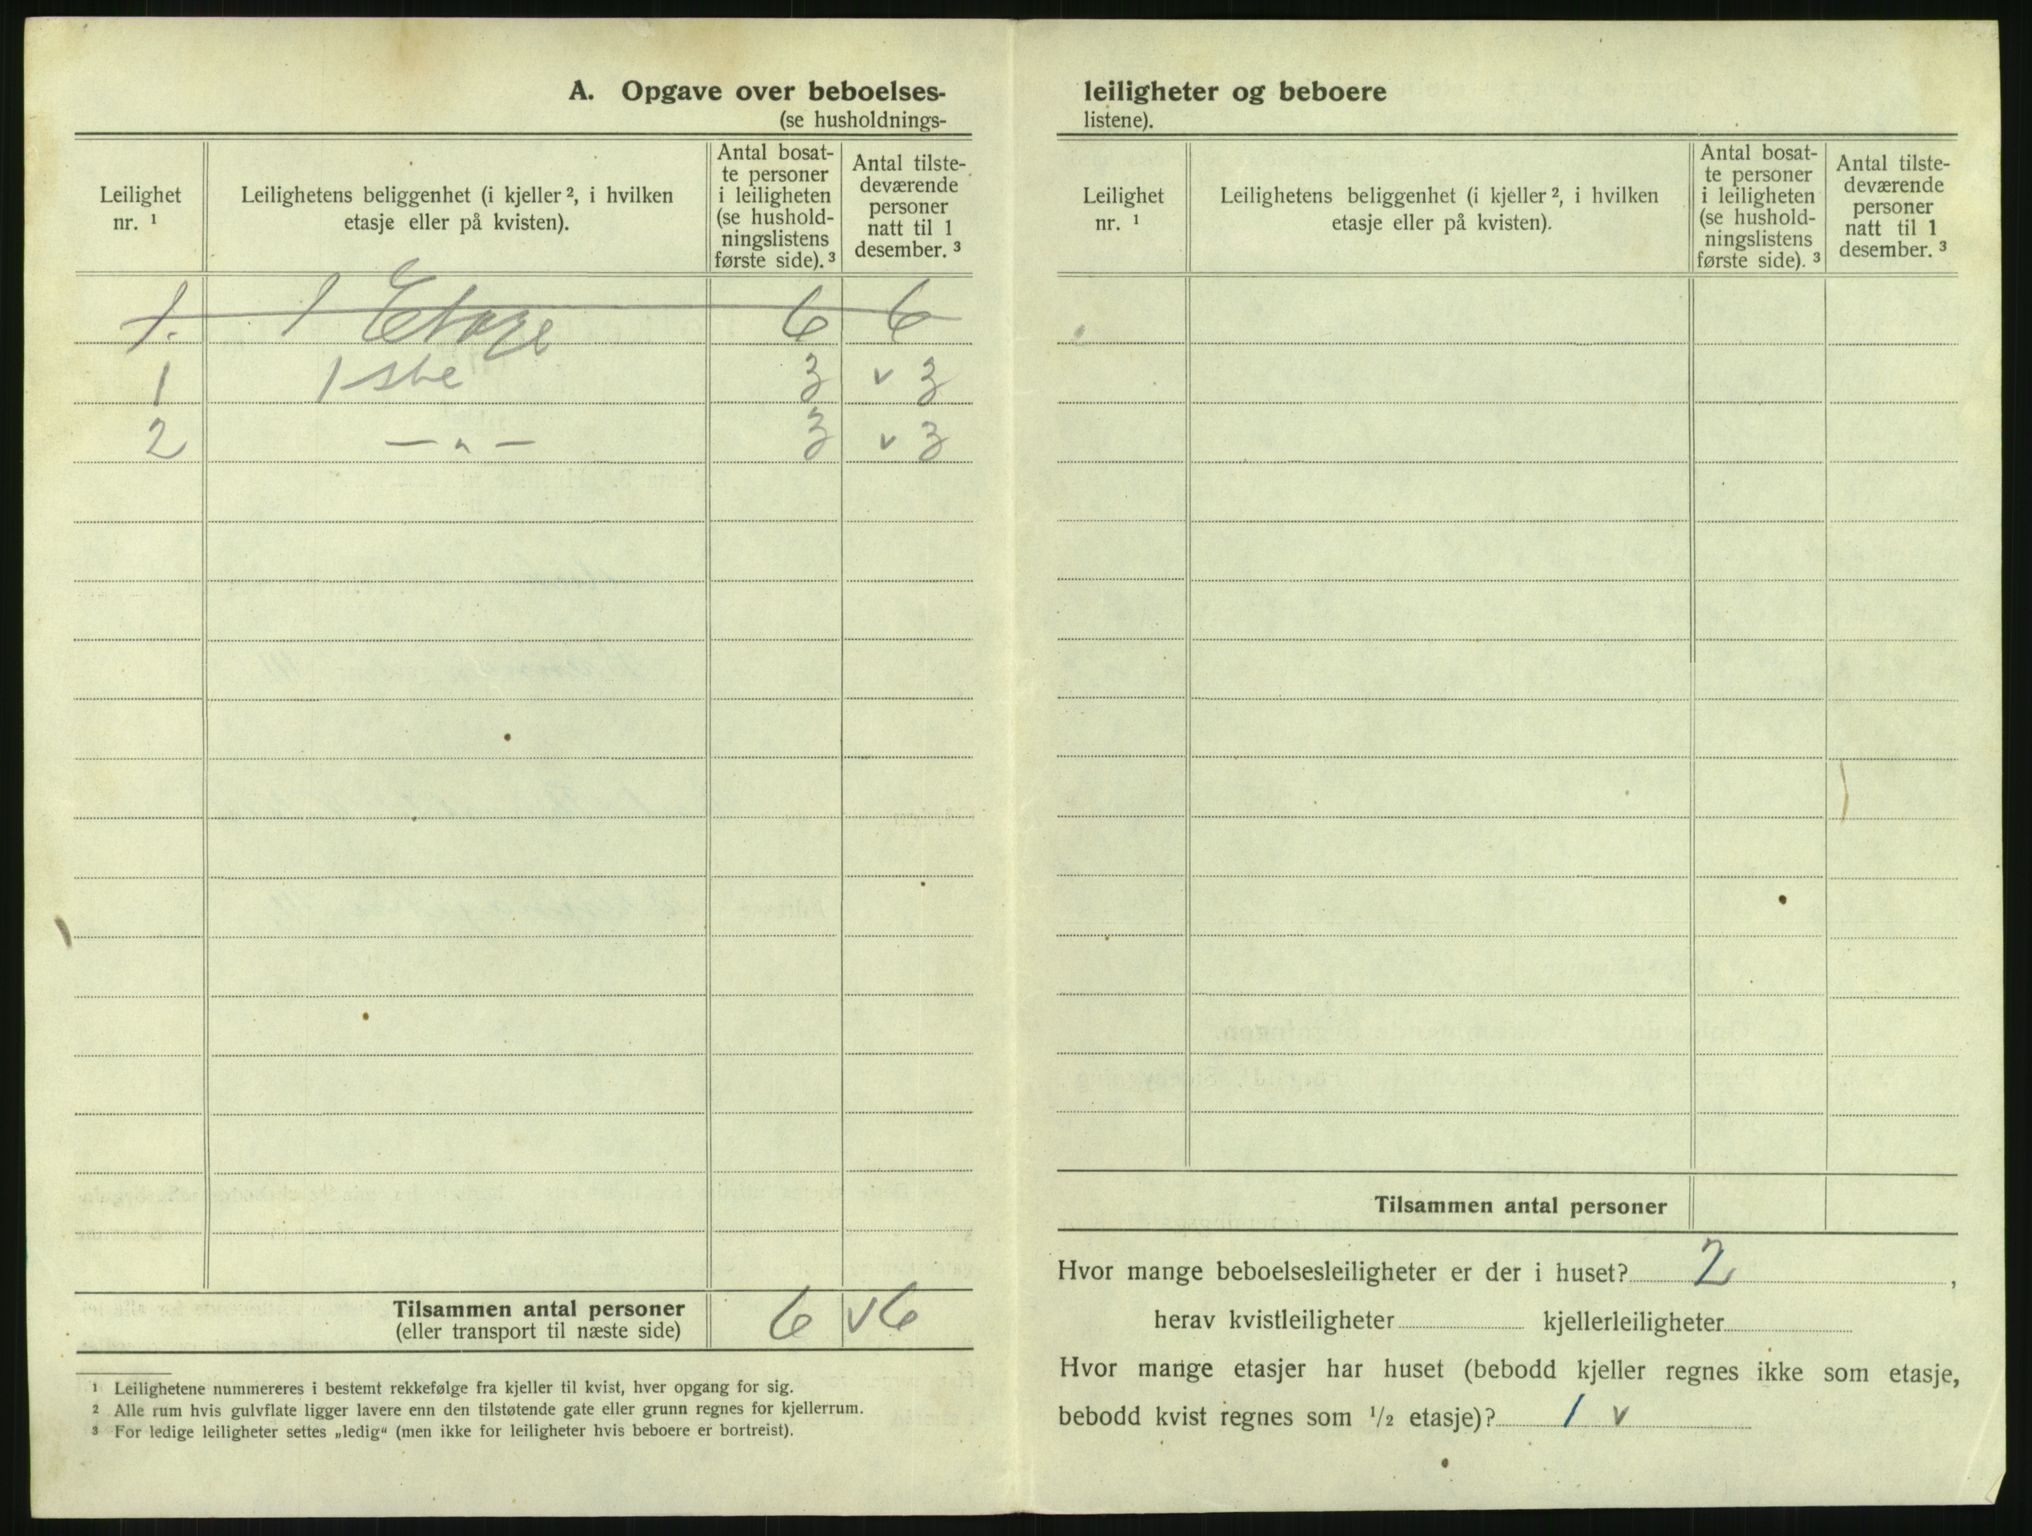 A. Opgave over beboelses-
(se husholdnings-
Leilighet
nr. ¹
Leilighetens beliggenhet (i kjeller ², i hvilken
etasje eller på kvisten).
Antal bosat-
te personer
i leiligheten
(se hushold-
ningslistens
første side). ³
Antal tilste-
deværende
personer
natt til 1
desember. ³
1. 1 Etage 6 6
1 1 ste 3 v 3
2 — „ — 3 v 3
Tilsammen antal personer 6 v 6
(eller transport til næste side)
¹ Leilighetene nummereres i bestemt rekkefølge fra kjeller til kvist, hver opgang for sig.
² Alle rum hvis gulvflate ligger lavere enn den tilstøtende gate eller grunn regnes for kjellerrum.
³ For ledige leiligheter settes „ledig“ (men ikke for leiligheter hvis beboere er bortreist).
leiligheter og beboere
listene).
Leilighet
nr. ¹
Leilighetens beliggenhet (i kjeller ², i hvilken
etasje eller på kvisten).
Antal bosat-
te personer
i leiligheten
(se hushold-
ningslistens
første side). ³
Antal tilste-
deværende
personer
natt til 1
desember. ³
Tilsammen antal personer
Hvor mange beboelsesleiligheter er der i huset? 2,
herav kvistleiligheter kjellerleiligheter
Hvor mange etasjer har huset (bebodd kjeller regnes ikke som etasje,
bebodd kvist regnes som ½ etasje)? 1 v